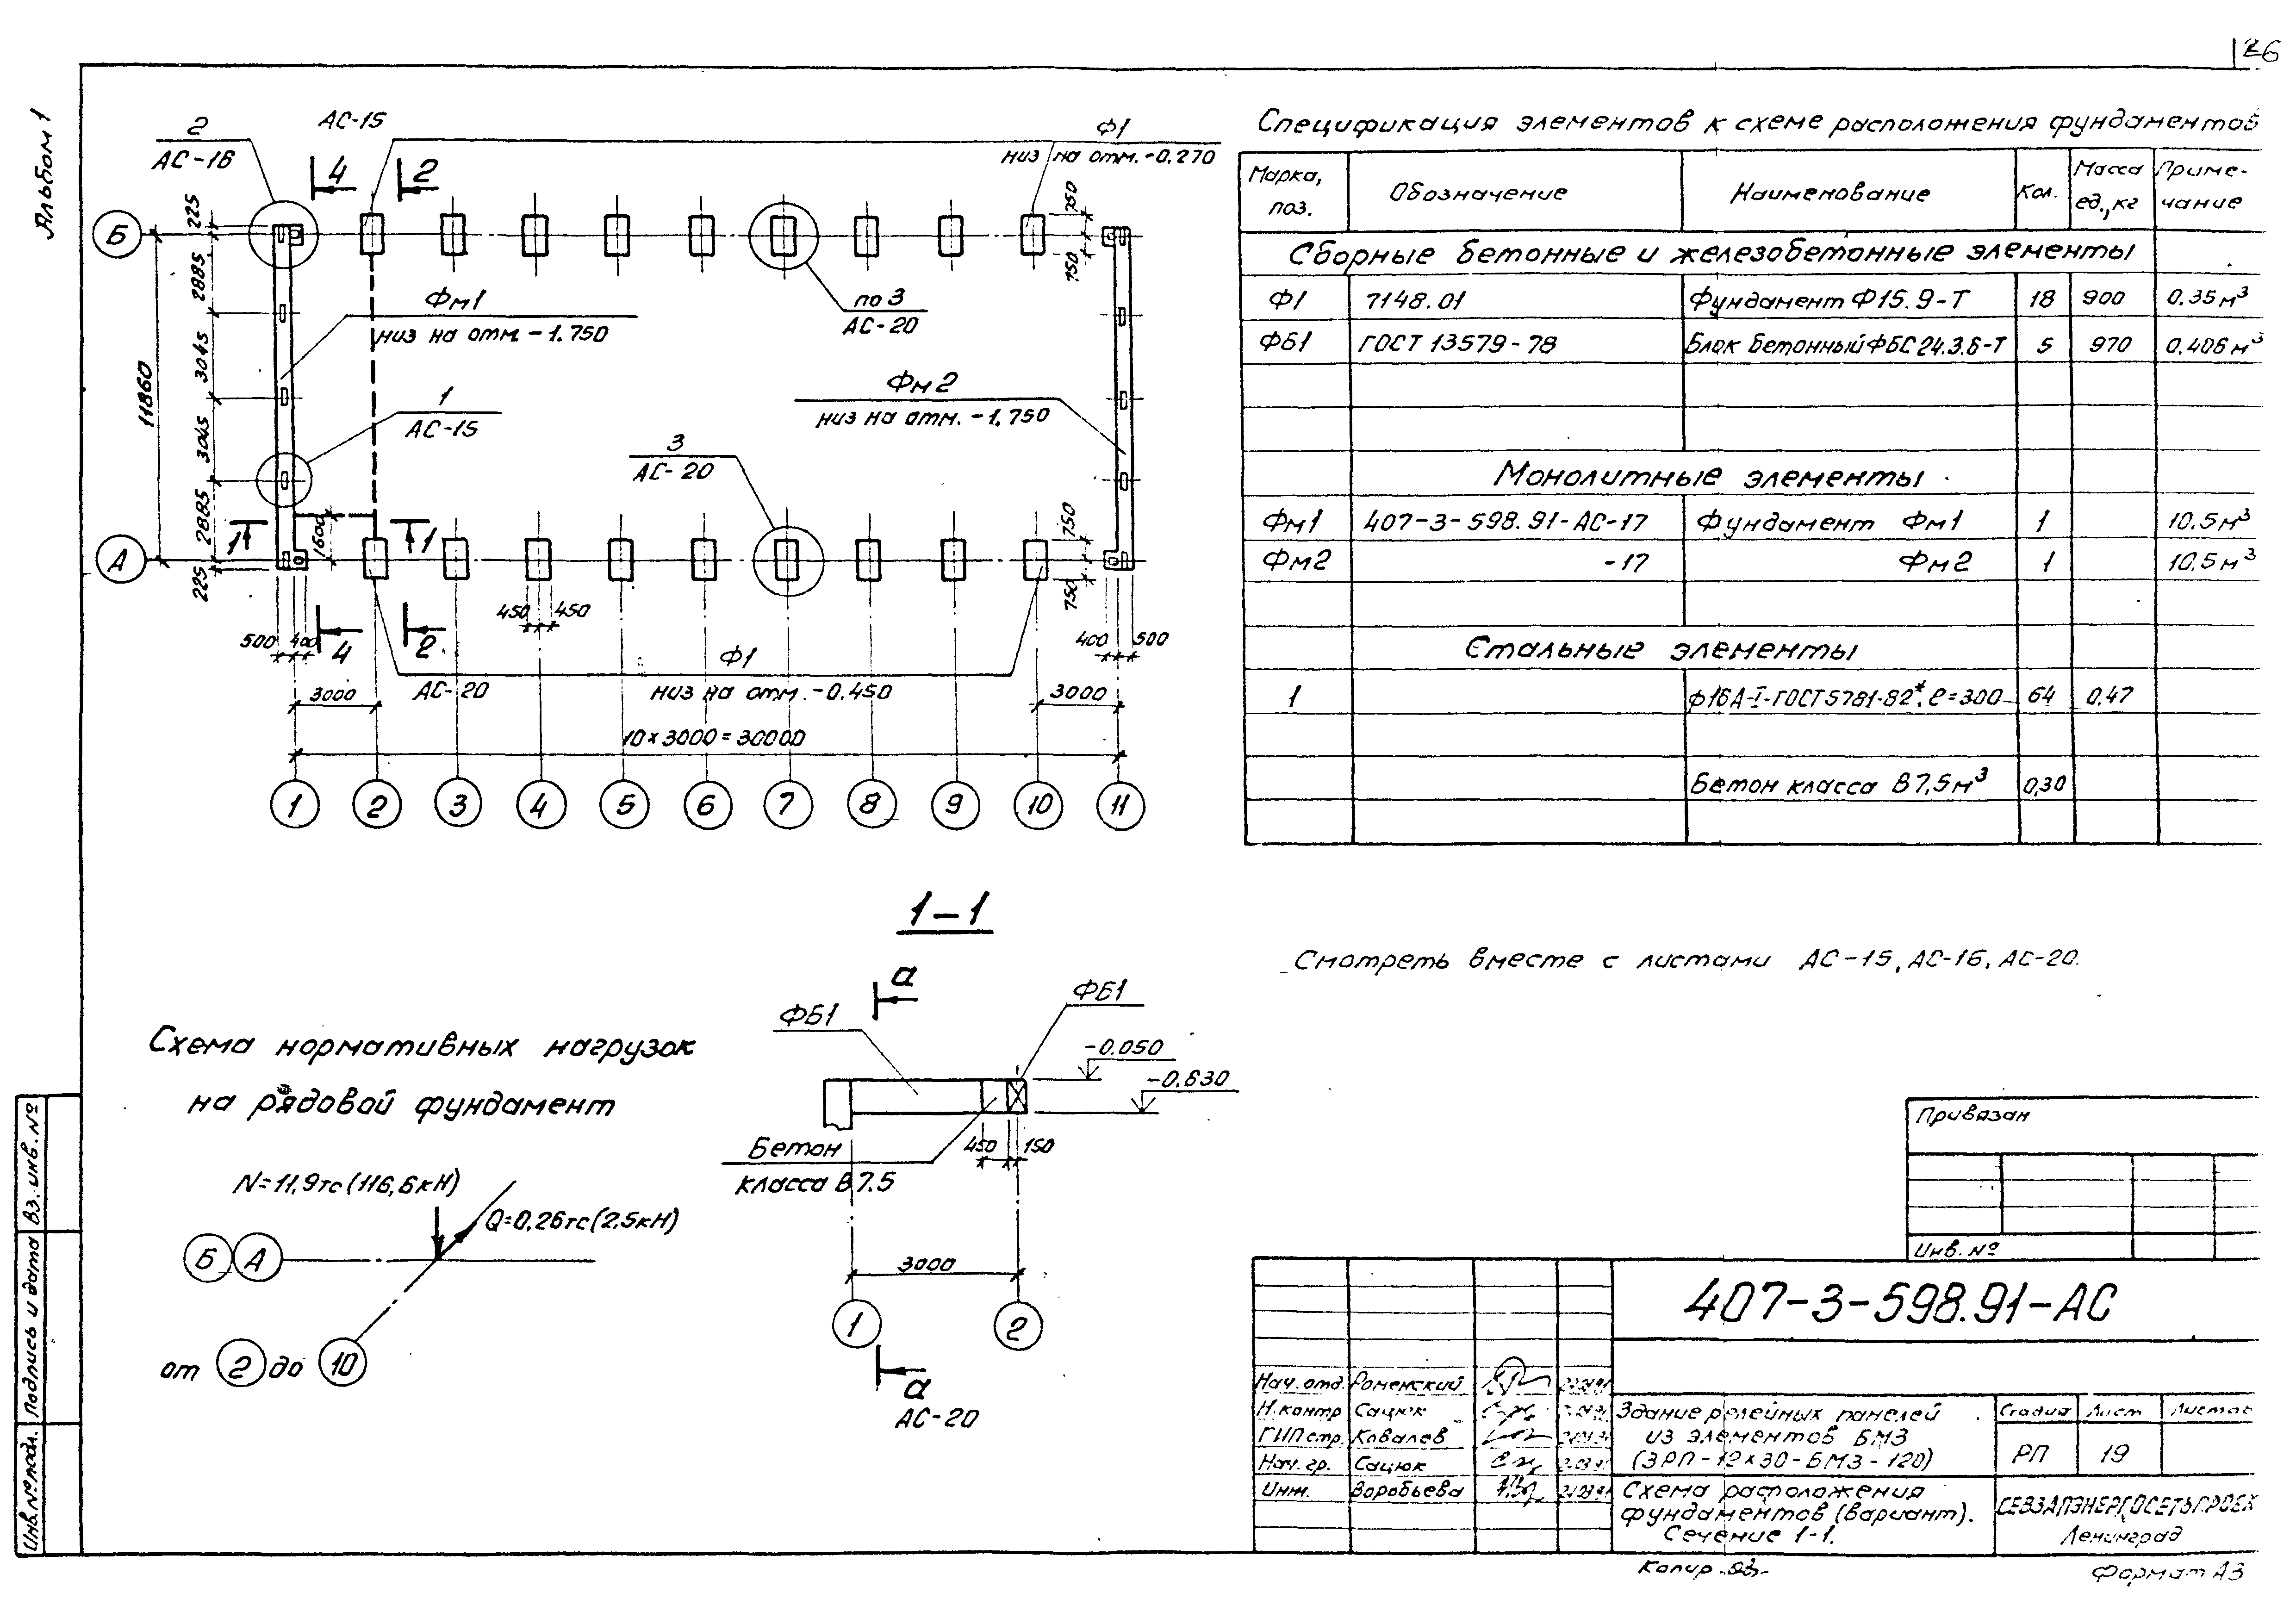 26
Альбом 1
2
АС-16
АС-15
Ф1
низ на отм. -0.270
4
2
Б
225
2885
3045
3045
2885
225
11860
750
750
Фм1
низ на отм. -1.750
по 3
АС-20
1
АС-15
Фм2
низ на отм. -1.750
3
АС-20
1
1600
1
А
750
750
450
450
500
400
4
2
400
500
Ф1
АС-20
низ на отм. -0.450
3000
3000
10×3000=30000
1
2
3
4
5
6
7
8
9
10
11
Спецификация элементов к схеме расположения фундаментов
Марка, поз.
Обозначение
Наименование
Кол.
Масса ед., кг
Приме-чание
Сборные бетонные и железобетонные элементы
Ф1 7148.01 Фундамент Ф15.9-Т 18 900 0.35м³
ФБ1 ГОСТ 13579-78 Блок бетонный ФБС 24.3.6-Т 5 970 0.406м³
Монолитные элементы
Фм1 407-3-598.91-АС-17 Фундамент Фм1 1 10.5м³
Фм2 -17 Фм2 1 10.5м³
Стальные элементы
1 ф16А-I-ГОСТ5781-82*, ℓ=300 64 0.47
Бетон класса В7,5 м³ 0,30
1-1
а
ФБ1
ФБ1
-0.050
-0.630
Бетон
класса В7.5
450
150
3000
1
2
а
АС-20
Смотреть вместе с листами АС-15, АС-16, АС-20.
Схема нормативных нагрузок
на рядовой фундамент
N=11,9тс(116,6кН)
Q=0,26тс(2,5кН)
Б
А
от 2 до 10
Привязан
Инв. №
407-3-598.91-АС
Нач. отд. Роменский
Н.контр Сацюк
ГИП стр. Ковалев
Нач. гр. Сацюк
Инж. Воробьева
Здание релейных панелей
из элементов БМЗ
(ЗРП-12×30-БМЗ-120)
Стадия
Лист
Листов
РП
19
Схема расположения
фундаментов (вариант).
Сечение 1-1.
СЕВЗАПЭНЕРГОСЕТЬПРОЕК
Ленинград
Копир
Формат А3
Инв.№подл.
Подпись и дата
Вз. инв. №